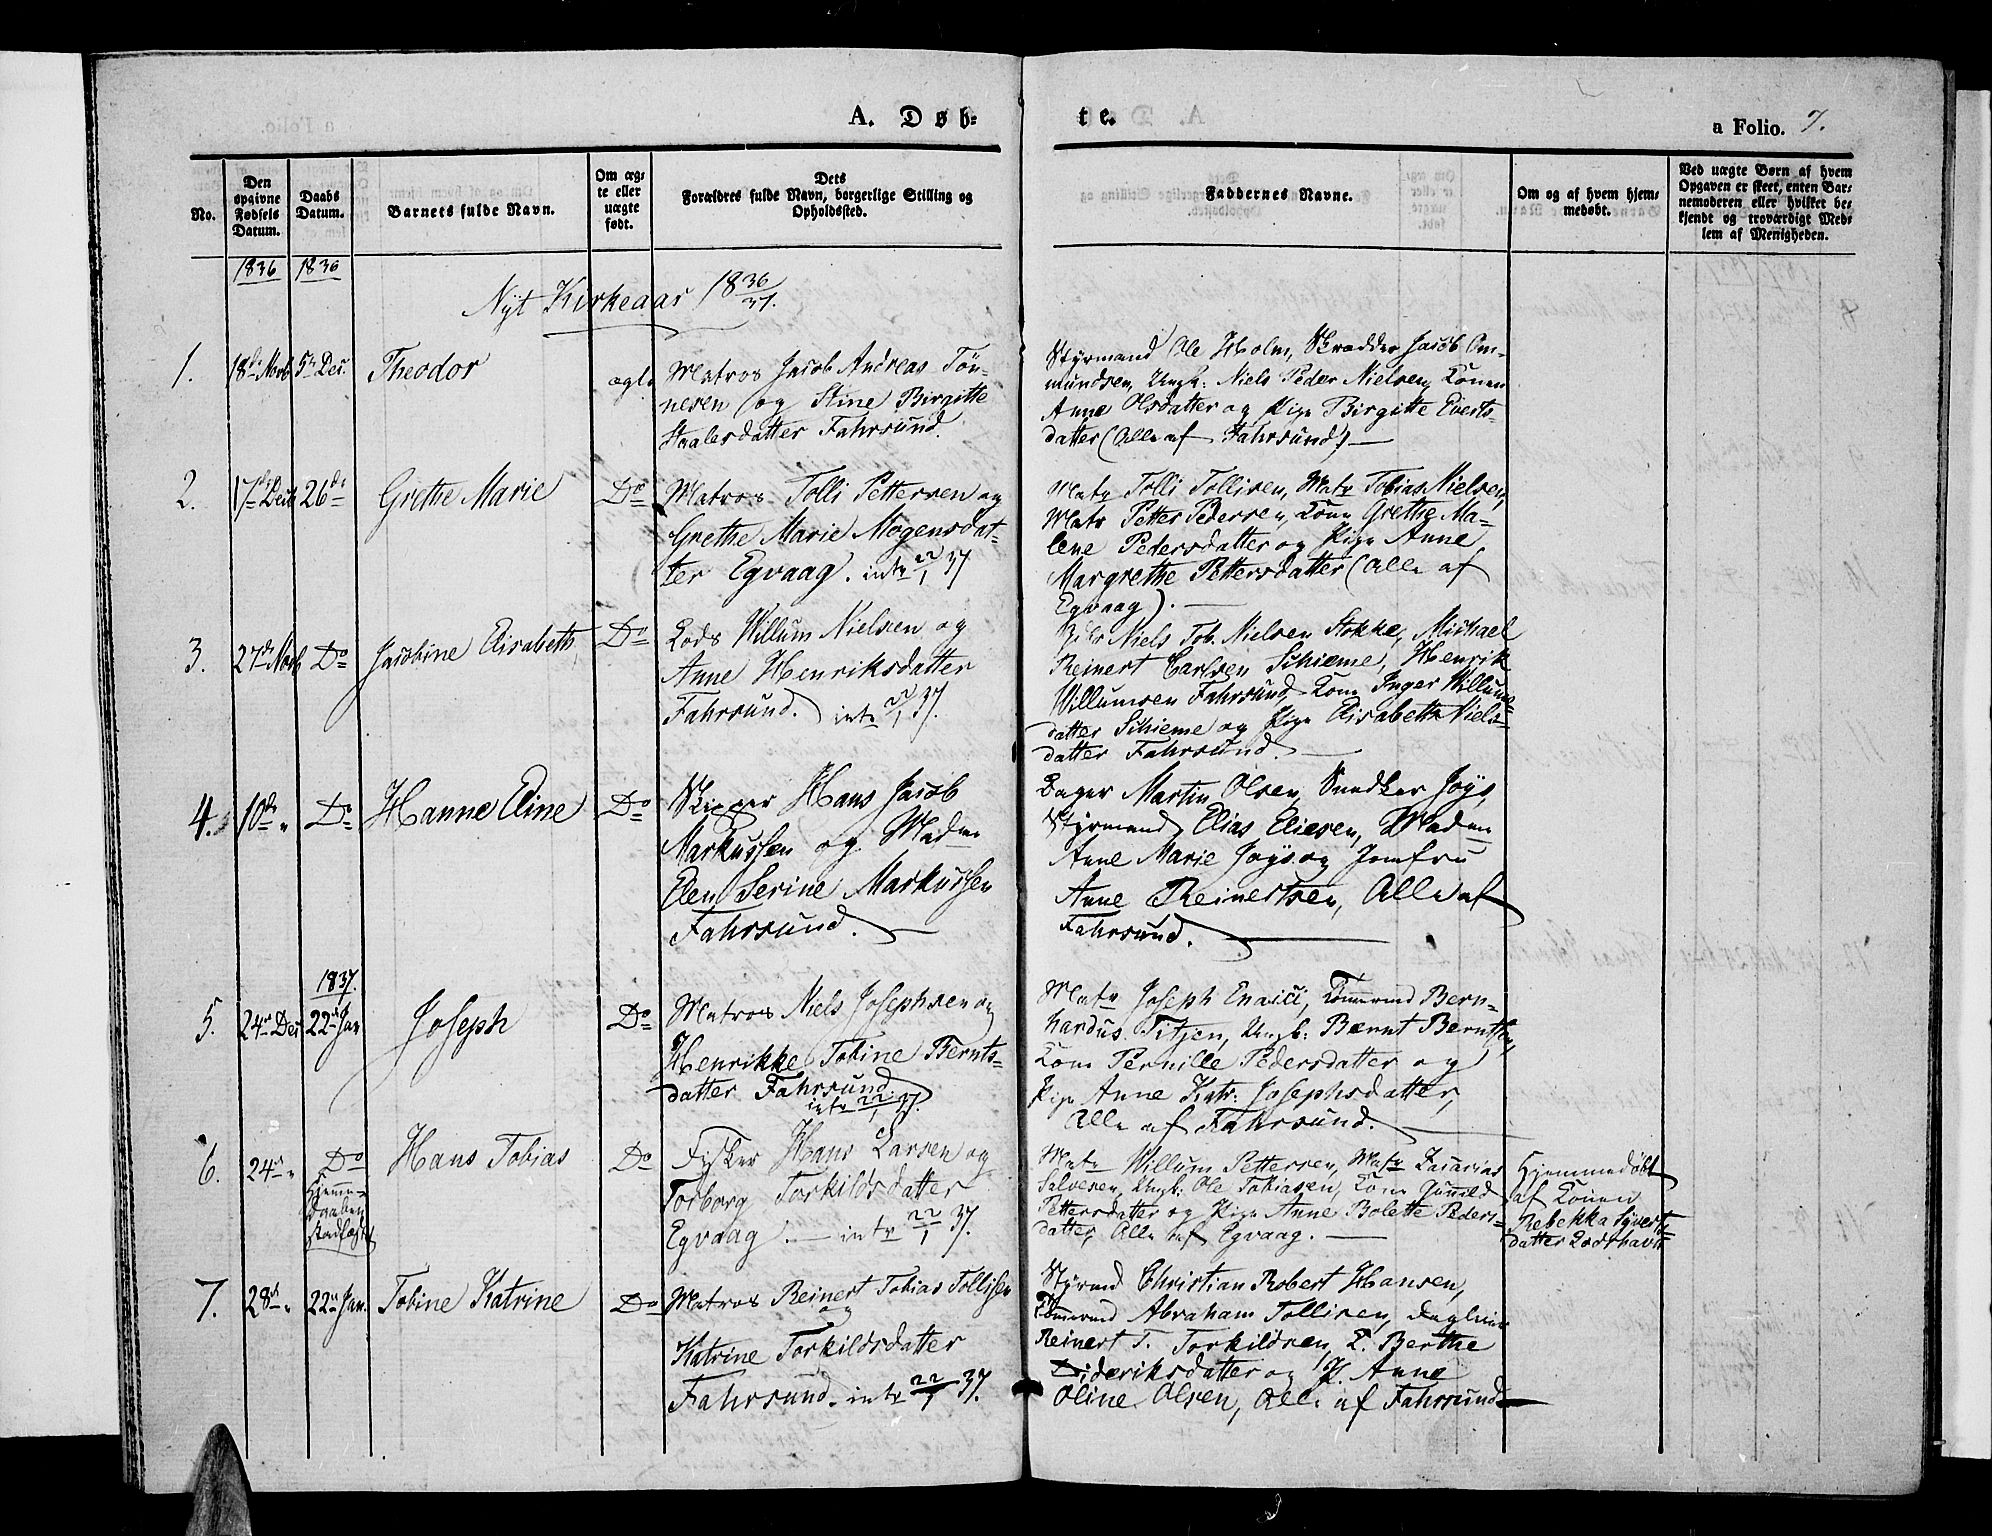 A. Døb-
te.
a Folio. 7.
No.
Den
opgivne
Fødsels
Datum.
Daabs
Datum.
Barnets fulde Navn.
Om æg-
te eller
uægte
født.
Dets
Forældres fulde Navn, borgerlige Stilling og
Opholdssted.
Faddernes Navne.
Om og af hvem hjem-
medøbt.
Ved uægte Børn af hvem
Opgaven er skeet, enten Bar-
nemoderen eller hvilket be-
kjendt og troværdigt Med-
lem af Menigheden.
1836 1836
Nyt Kirkeaar 18 36/37.
1. 18de Novb 5te Dec. Theodor ægte
Matros Jacob Andreas Tön-
nesen og Stine Birgitte
Staalesdatter Fahrsund.
Styrmand Ole Holm, Skrædder Jacob Om-
mundsen, Ungk: Niels Peder Nielsen, Konen
Anne Olsdatter og Pige Birgitte Everts-
datter (Alle af Fahrsund) —
2. 17de Decb 26de Grethe Marie Do
Matros Tolli Pettersen og
Grethe Marie Mogensdat-
ter Egvaag. intr 22/1 37
Matr Tolli Tollisen, Matr Tobias Nielsen,
Matr Petter Pedersen, Kone Grethe Ma-
lene Pedersdatter og Pige Anne
Margrethe Pettersdatter (Alle af
Egvaag). —
3. 27de Novb Do Jacobine Elisabeth Do
Lods Willum Nielsen og
Anne Henriksdatter
Fahrsund. intr 22/1 37.
Niels Tob. Nielsen Stokke, Michael
Reinert Carlsen Schieme, Henrik
Willumsen Fahrsund, Kone Inger Willums-
datter Schieme og Pige Elisabeth Niels-
datter Fahrsund. —
4. 10de " Do Hanne Eline Do
Skipper Hans Jacob
Markussen og Madm
Elen Serine Markussen
Fahrsund. —
Bager Martin Olsen, Snedker Joys,
Styrmand Elias Eliesen, Madm
Anne Marie Joys og Jomfru
Anne Reinertsen, Alle af
Fahrsund. —
1837.
5. 24de Dec 22de Jan Joseph Do
Matros Niels Josephsen og
Henrikke Tobine Bernts-
datter Fahrsund.
intr 22/1 37.
Matr Joseph Tömmermd Bern-
hardus Titjen, Ungk: Bærnt Berntsen,
Kone Pernille Pedersdatter og
Pige Anne Katr: Josephsdatter,
Alle af Fahrsund. —
6. 24de " Do Hans Tobias Do
Hjemme-
daaben
stadfæstet
Fisker Hans Larsen og
Torborg Torkildsdatter
Egvaag. — intr 22/1 37.
Matr Willum Pettersen, Matr Zacarias
Salvesen, Ungk: Ole Tobiasen, Kone Gunild
Pettersdatter og Pige Anne Bolette Peders-
datter, Alle af Egvaag. —
Hjemmedöbt
af Konen
Rebekka Syverts-
datter Lodshavn
7. 28de " 22de Jan. Tobine Katrine Do
Matros Reinert Tobias Tollisen
og
Katrine Torkildsdatter
Fahrsund. intr 22/1 37.
Styrmd Christian Robert Hansen,
Tömmermd Abraham Tollisen,
Reinert T. Torkildsen, K. Berthe
Dideriksdatter og P. Anne
Oline Olsen, Alle af Fahrsund —